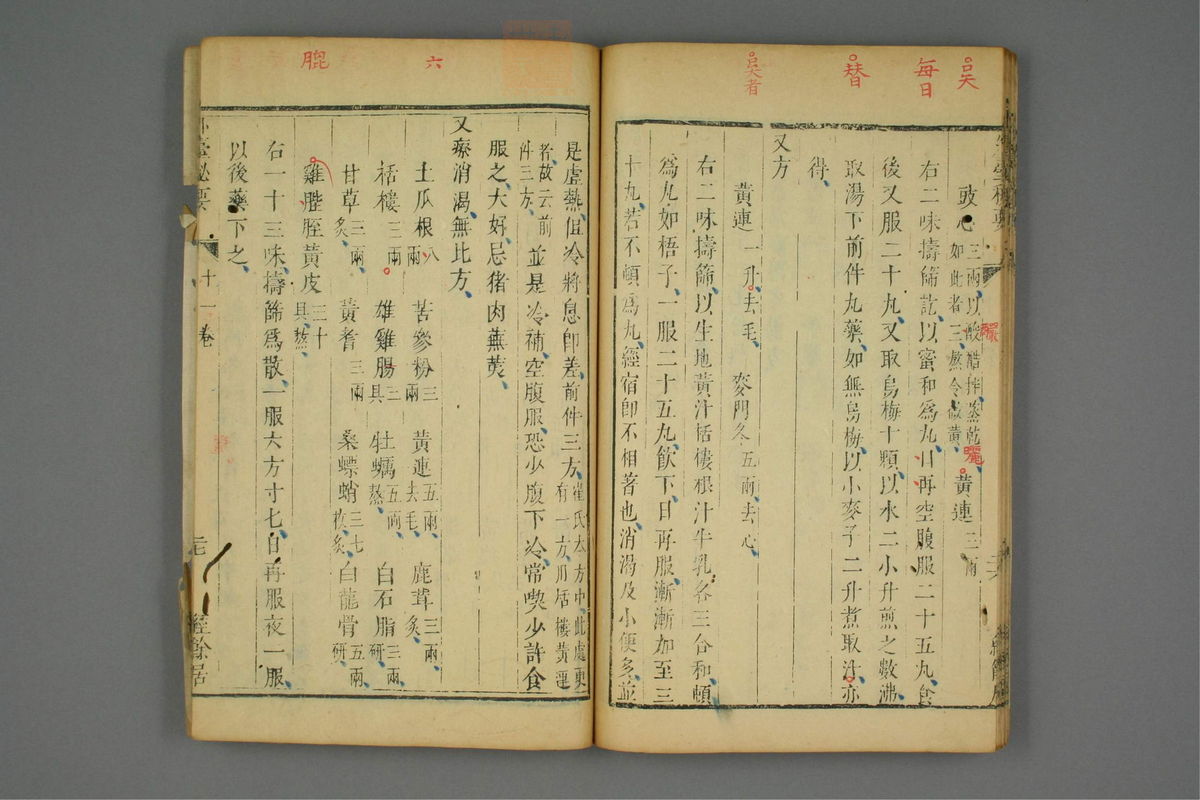 吴
每日
替
吴者
豉心三兩以酸醋拌蒸乾
如此者三熬令微黄黄連三兩
右二味擣篩訖以蜜和爲丸日再空腹服二十五丸食
後又服二十丸又取烏梅十顆以水二小升煎之數沸
取湯下前件丸藥如無烏梅以小麥子二升煮取汁亦
得
又方
黃連一升去毛 麥門冬五兩去心
右二味擣篩以生地黃汁栝樓根汁牛乳各三合和頓
爲丸如梧子一服二十五丸飲下日再服漸漸加至三
十丸若不頓爲丸經宿即不相著也消渴及小便多並
六
膍
是虛熱但冷將息即差前件三方崔氏本方中此處更
有一方用栝樓黃連
者故云前
件三方並是冷補空腹服恐少腹下冷常喫少許食
服之大好忌猪肉蕪荑
又療消渴無比方
土瓜根八兩 苦參粉三兩 黃連五兩去毛 鹿茸三兩炙
栝樓三兩 雄雞腸三具 牡蠣五兩熬 白石脂三兩研
甘草三兩炙 黃耆三兩 桑螵蛸三七枚炙 白龍骨五兩研
雞膍胵黃皮三十具熬
右一十三味擣篩爲散一服六方寸匕日再服夜一服
以後藥下之
外臺秘要
十一卷
經餘居